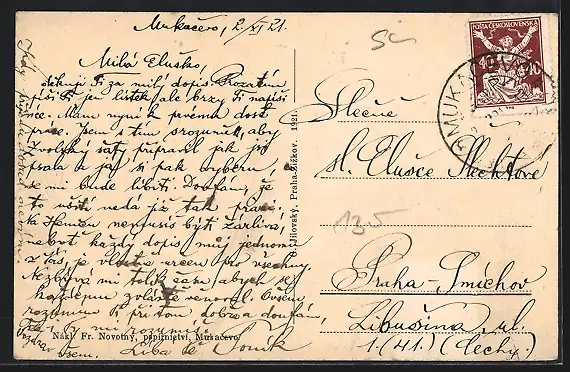 Mukačevo, 2/XI 21.
Milá Eluško,
děkuji Ti za milý dopis. Prozatím
píši Ti jen lístek ale brzy Ti napíši
více. Mám nyní k prvému dost
práce. Jsem s tím srozuměn, aby
Zvolský šaty připravil jak jsi
psala a já si pak vyberu
se mi bude líbiti. Doufám, že
to ušití nedá již tak práci.
Na Henču nemusíš býti žárliva,
neboť každý dopis můj jednomu
z Vás, je vlastně určen pro všechny.
Nezbývá mi tolik času abych se
každému zvláště venoval. Ovšem
rozumím Ti při tom dobře a doufám,
že i Ty mi rozumíš.
všem. Líbá Tě Toník
Nákl. Fr. Novotný, papírnictví, Mukačevo
O. Jilovský, Praha-Žižkov. 1921.
POŠTA ČESKOSLOVENSKÁ
40 40
MUKAČEVO
Sc
Slečně
sl. Elušce Šlechtové
135
Praha-Smíchov
Libušina ul.
1.(41.) (Čechy.)